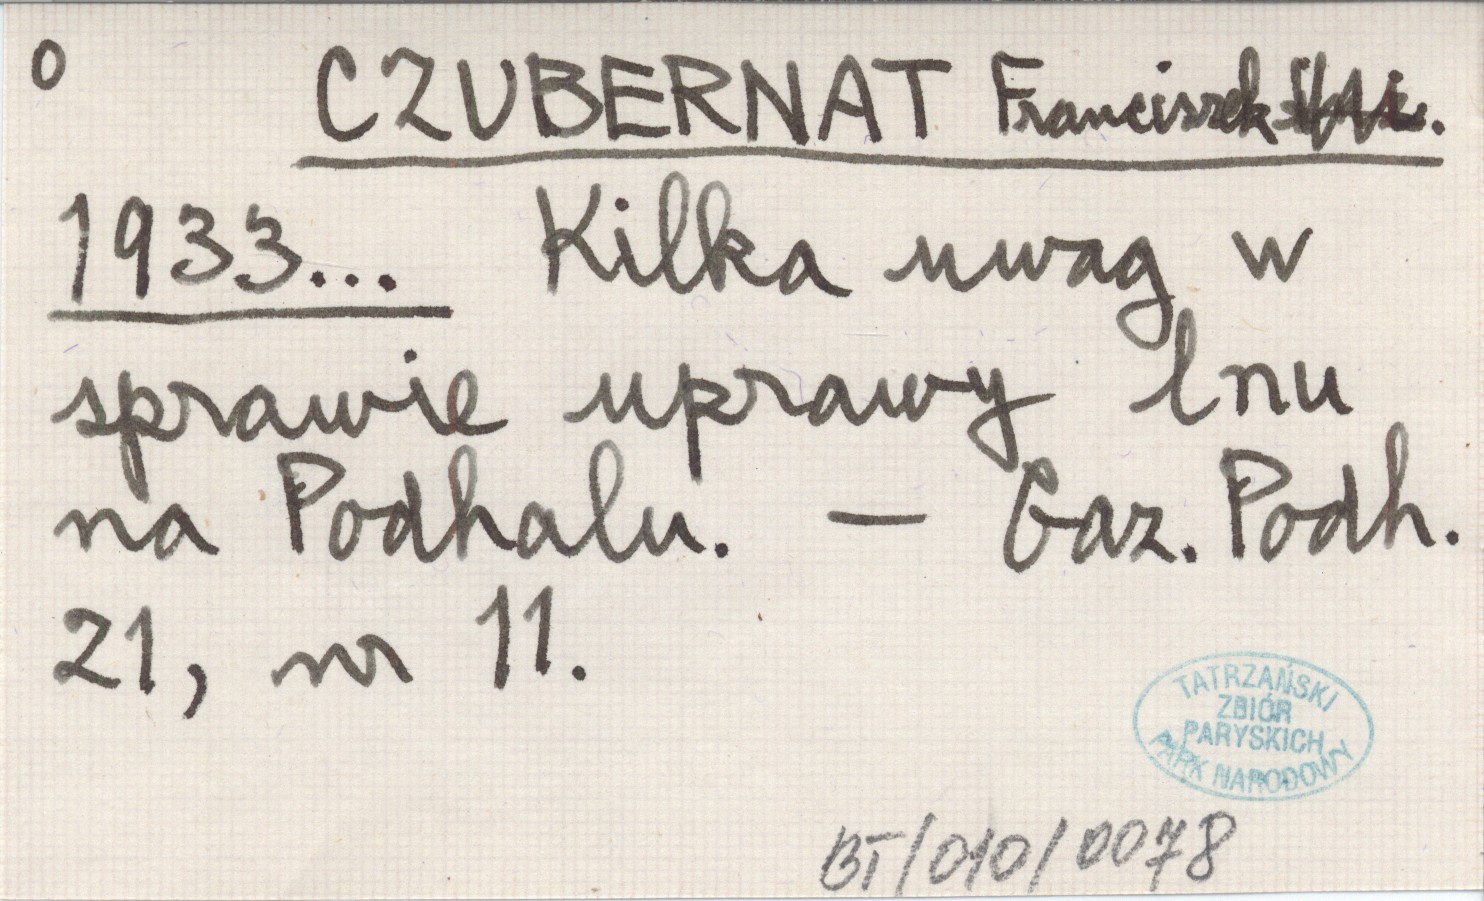 o CZUBERNAT Franciszek
1933... Kilka uwag w
sprawie uprawy lnu
na Podhalu. — Gaz. Podh.
21, nr 11.
TATRZAŃSKI
ZBIÓR
PARYSKICH
PARK NARODOWY
BT/010/0078